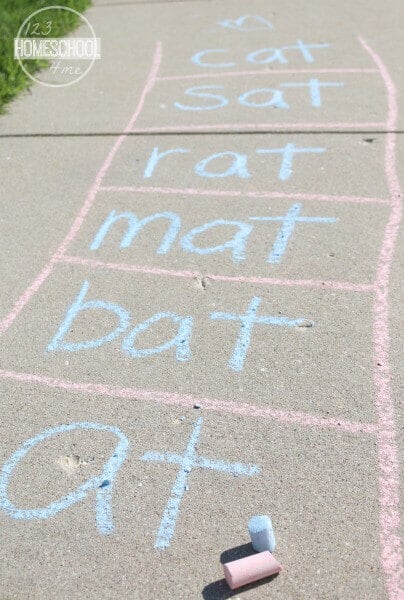 123
HOMESCHOOL
4 me
cat
sat
rat
mat
bat
at